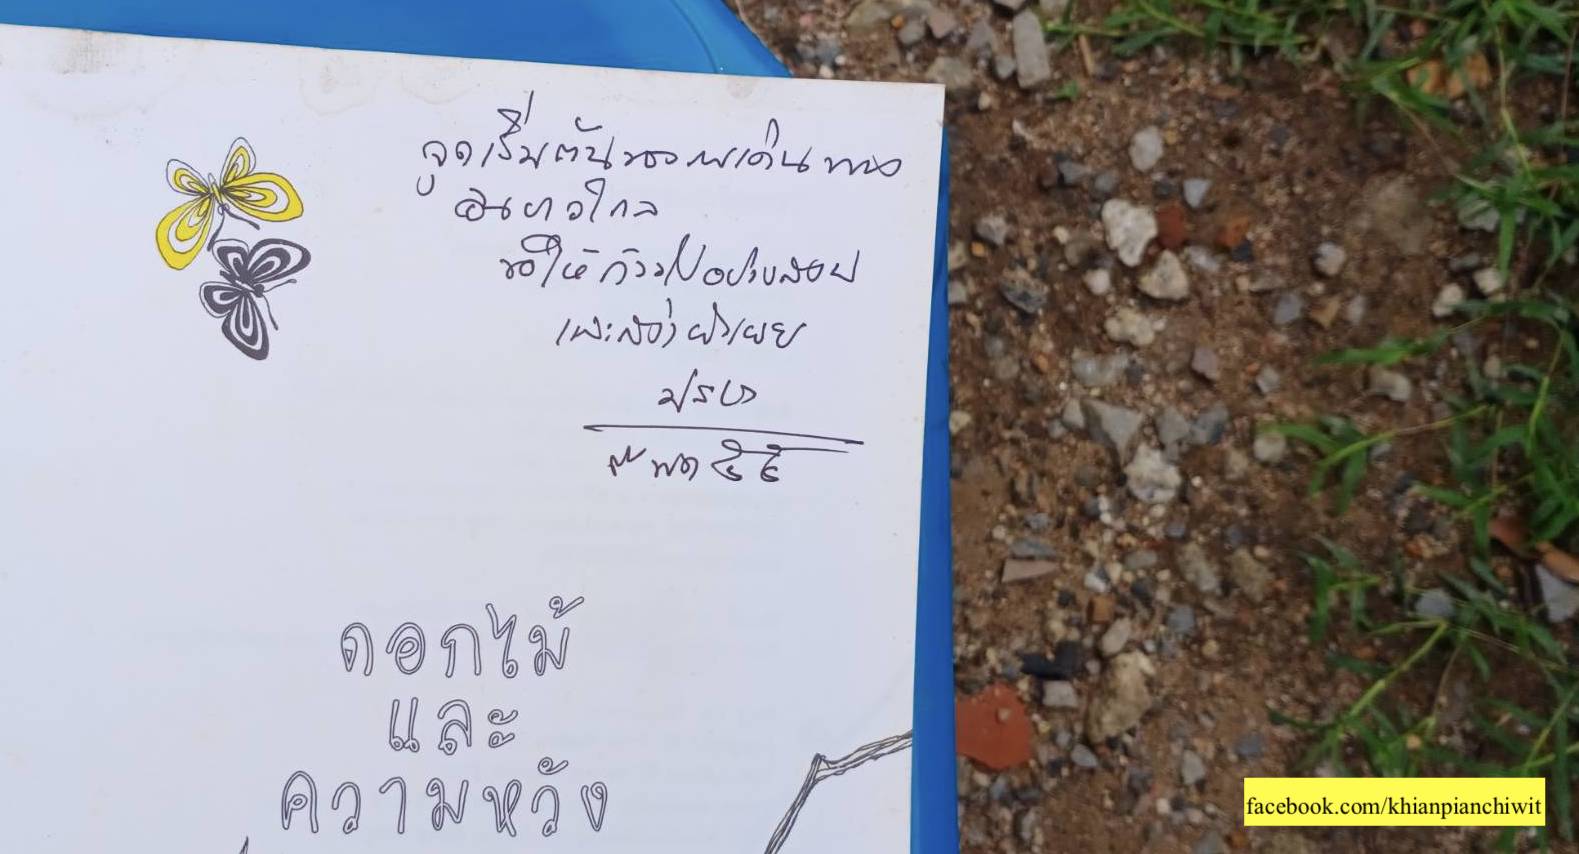 จุดเริ่มต้นของการเดินทาง
อันยาวไกล
ขอให้ก้าวไปอย่าง
และสง่าผ่าเผย
ดอกไม้
และ
ความหวัง
facebook.com/khianpianchiwit